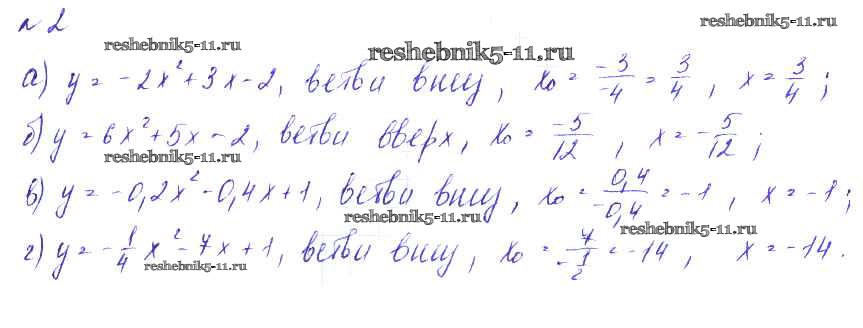 №2
reshebnik5-11.ru
reshebnik5-11.ru
reshebnik5-11.ru
а) y = -2x²+3x-2, ветви вниз, x₀ = -3/-4 = 3/4, x = 3/4;
б) y = 6x²+5x-2, ветви вверх, x₀ = -5/12, x = -5/12;
reshebnik5-11.ru
в) y = -0,2x²-0,4x+1, ветви вниз, x₀ = 0,4/-0,4 = -1, x = -1;
reshebnik5-11.ru
reshebnik5-11.ru
г) y = -1/4 x²-7x+1, ветви вниз, x₀ = 7/-1/2 = -14, x = -14.
reshebnik5-11.ru